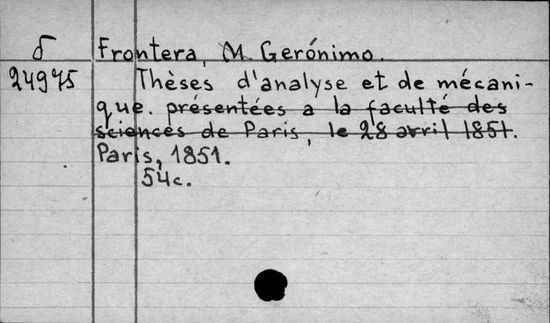 б Frontera, M. Gerónimo.
24975 Thèses d'analyse et de mécani-
que. présentées a la faculté des
sciences de Paris, le 28 avril 1851.
Paris, 1851.
54c.